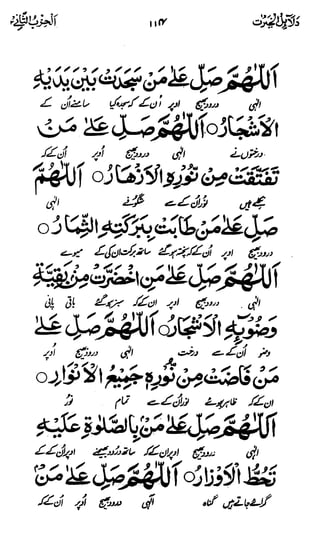 دَلَائِلُ الْخَيْرَات ۱۱۴ اَلْحِزْبُ الثَّانِي
اَللّٰهُمَّ صَلِّ عَلٰى مَنْ سَجَدَتْ بَيْنَ يَدَيْهِ
الٰہی درود بھیج اوپر اُن کے کہ سجدہ کیا سامنے اُن کے
الْاَشْجَارُ ○ اَللّٰهُمَّ صَلِّ عَلٰى مَنْ
درختوں نے الٰہی درود بھیج اوپر اُن کے کہ
تَفَتَّقَتْ مِنْ نُّوْرِهِ الْاَزْهَارُ ○ اَللّٰهُمَّ
نور اُن کے سے شگوفے الٰہی
صَلِّ عَلٰى مَنْ طَابَتْ بِبَرَكَتِهِ الثِّمَارُ ○
درود بھیج اوپر اُن کے کہ پختہ ہو گئے ساتھ برکت ان کی کے میوے
اَللّٰهُمَّ صَلِّ عَلٰى مَنِ اخْضَرَّتْ مِنْ بَقِيَّةِ
الٰہی درود بھیج اوپر ان کے کہ سبز ہو گئے باقی پانی
وَضُوْئِهِ الْاَشْجَارُ ○ اَللّٰهُمَّ صَلِّ عَلٰى
وضو اُن کے سے درخت الٰہی درود بھیج اوپر
مَنْ فَاضَتْ مِنْ نُّوْرِهٖ جَمِيْعُ الْاَنْوَارِ ○
ان کے کہ ظاہر ہوئے نور اُن کے سے تمام نور
اَللّٰهُمَّ صَلِّ عَلٰى مَنْ بِالصَّلٰوةِ عَلَيْهِ
الٰہی درود بھیج اوپر ان کے کہ ساتھ درود بھیجنے اوپر ان کے کے
تُحَطُّ الْاَوْزَارُ ○ اَللّٰهُمَّ صَلِّ عَلٰى مَنْ
گرائے جاتے ہیں گناہ الٰہی درود بھیج اوپر اُن کے کہ